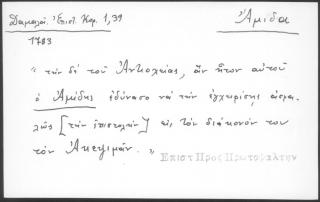 Δαμαλά. Ἐπιστ. Καρ. 1, 39
Ἀμίδας
1783
" τὴν δι' τοῦ Ἀντιοχείας, ἂν ἦτον αὐτοῦ
ὁ Ἀμίδης ἐδύνασο νὰ τὴν ἐγχειρίσῃς ἀσφα-
λῶς [τὴν ἐπιστολὴν] εἰς τὸν διάκονόν του
τὸν Ἀκεψιμᾶν. "
Επιστ Προς Πρωτοψαλτην